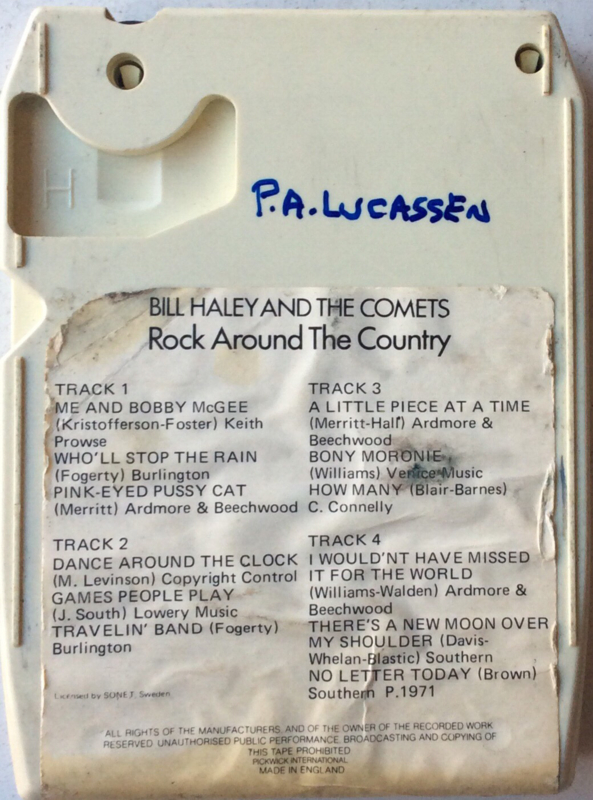 H
P.A.LUCASSEN
BILL HALEY AND THE COMETS
Rock Around The Country
TRACK 1
ME AND BOBBY McGEE
(Kristofferson-Foster) Keith
Prowse
WHO'LL STOP THE RAIN
(Fogerty) Burlington
PINK-EYED PUSSY CAT
(Merritt) Ardmore & Beechwood
TRACK 2
DANCE AROUND THE CLOCK
(M. Levinson) Copyright Control
GAMES PEOPLE PLAY
(J. South) Lowery Music
TRAVELIN' BAND (Fogerty)
Burlington
TRACK 3
A LITTLE PIECE AT A TIME
(Merritt-Hall) Ardmore &
Beechwood
BONY MORONIE
(Williams) Venice Music
HOW MANY (Blair-Barnes)
C. Connelly
TRACK 4
I WOULD'NT HAVE MISSED
IT FOR THE WORLD
(Williams-Walden) Ardmore &
Beechwood
THERE'S A NEW MOON OVER
MY SHOULDER (Davis-
Whelan-Blastic) Southern
NO LETTER TODAY (Brown)
Southern P.1971
Licensed by SONET. Sweden
ALL RIGHTS OF THE MANUFACTURERS, AND OF THE OWNER OF THE RECORDED WORK
RESERVED. UNAUTHORISED PUBLIC PERFORMANCE, BROADCASTING AND COPYING OF
THIS TAPE PROHIBITED
PICKWICK INTERNATIONAL
MADE IN ENGLAND